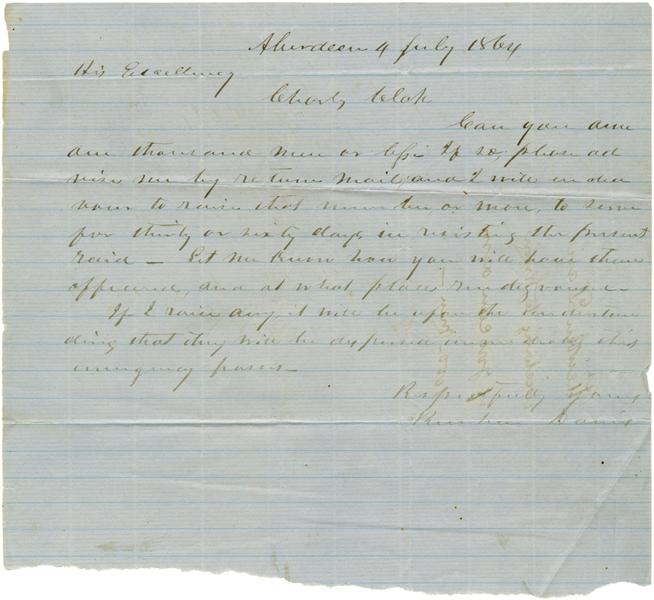 Aberdeen 4 July 1864
His Excellency
Charls Clark
Can you arm
one thousand men or less If so, please ad
vise me by return mail, and I will endea
vour to raise that number, or more, to serve
for thirty or sixty days in resisting the present
raid — Let me know how you will have them
officered, and at what place rendezvous—
If I raise any it will be upon the understan
ding that they will be dispersed immediately this
emergency passes—
Respectfully Yours
Reuben Davis